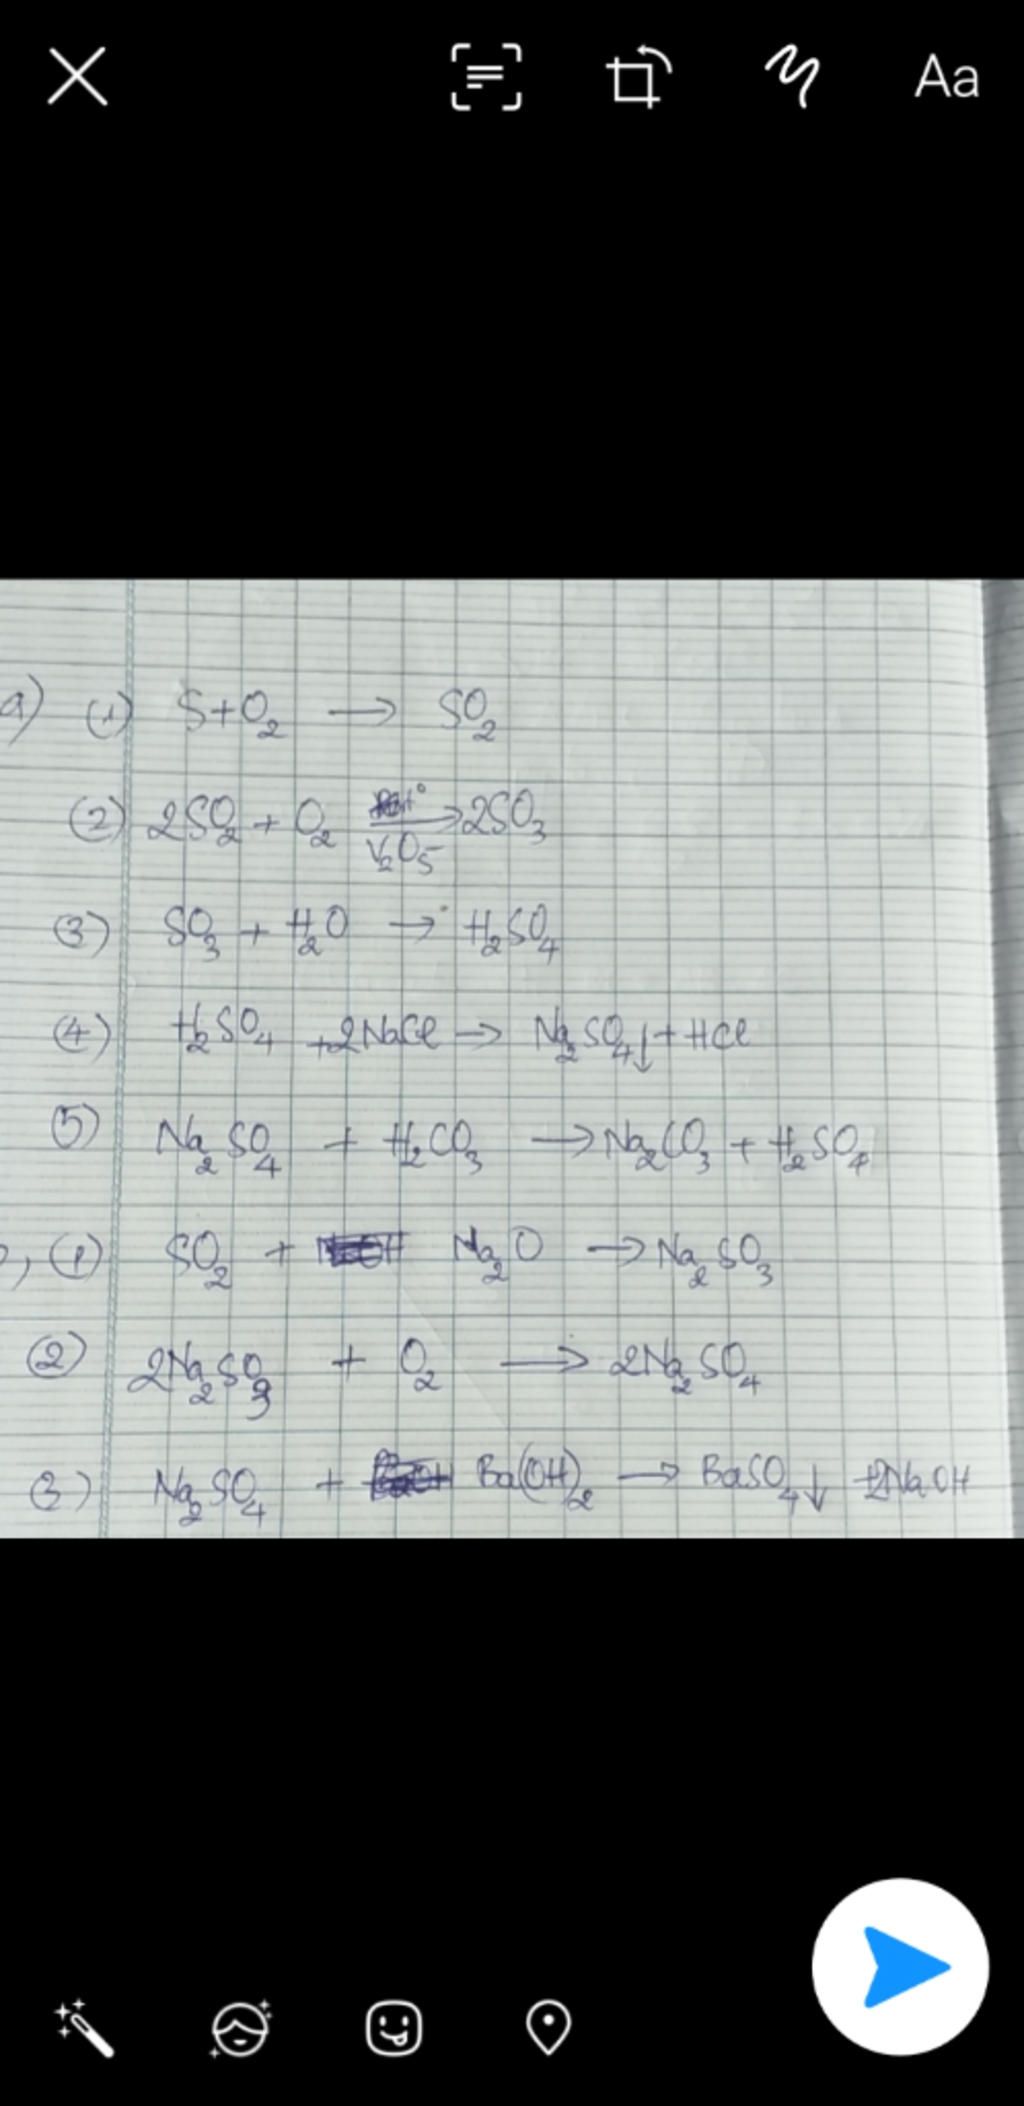 Aa
a) (1) S+O₂ → SO₂
(2) 2SO₂ + O₂ t° → V₂O₅ 2SO₃
(3) SO₃ + H₂O → H₂SO₄
(4) H₂SO₄ +2NaCl → Na₂SO₄↓ + HCl
(5) Na₂SO₄ + H₂CO₃ → Na₂CO₃ + H₂SO₄
, (1) SO₂ + Na₂O → Na₂SO₃
(2) 2Na₂SO₃ + O₂ → 2Na₂SO₄
(3) Na₂SO₄ + Ba(OH)₂ → BaSO₄↓ +2NaOH